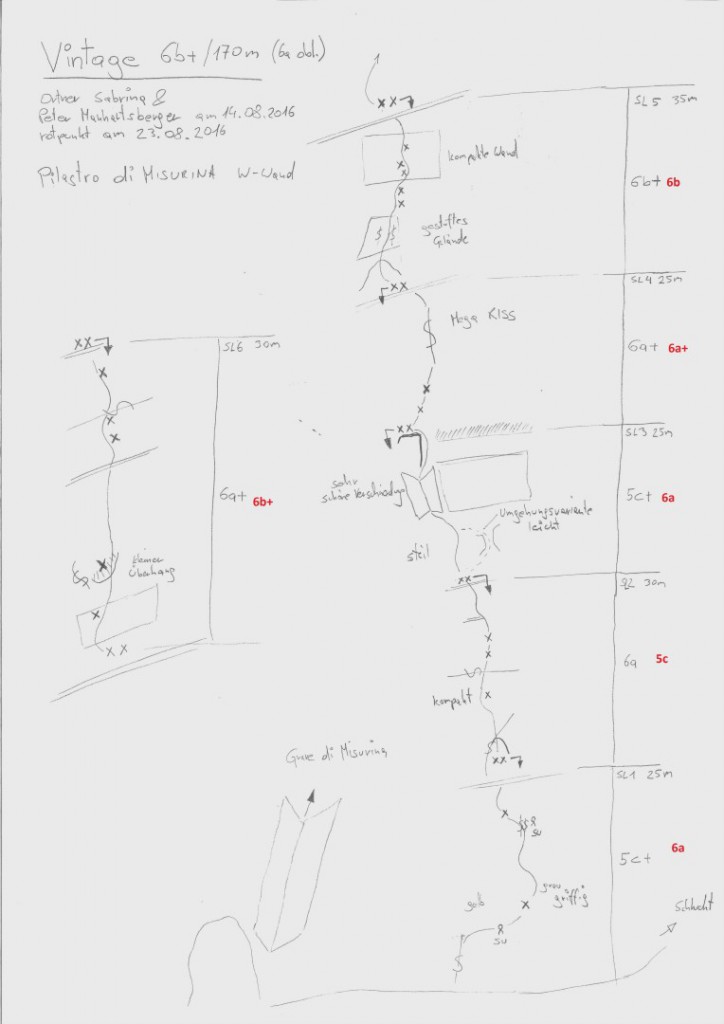 Vintage 6b+/170m (6a obl.)
Ortner Sabrina &
Peter Manhartsberger am 14.08.2016
rotpunkt am 23.08.2016
Pilastro di MISURINA W-Wand
SL5 35m
kompakte Wand
6b+ 6b
gestuftes
Gelände
SL4 25m
Mega KISS
6a+ 6a+
XX
SL6 30m
SL3 25m
6a+ 6b+
sehr
schöne Verschneidung
5c+ 6a
Umgehungsvariante
leicht
steil
kleiner
Überhang
SL2 30m
6a 5c
kompakt
Guve di Misurina
SL1 25m
SU
5c+ 6a
grau
griffig
gelb
SU
Schlucht